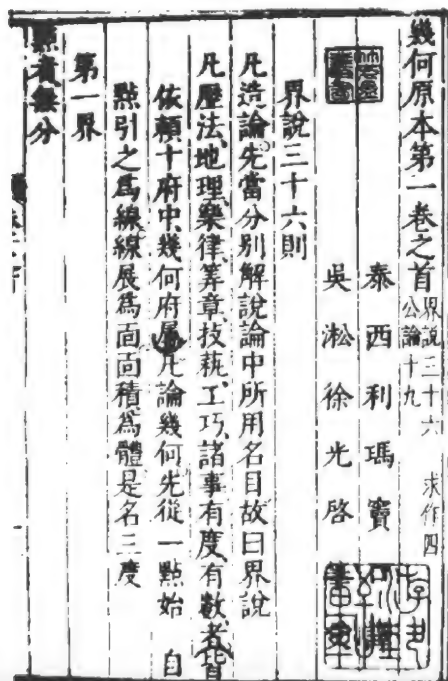 幾何原本第一卷之首界說三十六 求作四
公論十九
泰西利瑪竇
吳淞徐光啓
界說三十六則
凡造論先當分別解說論中所用名目故曰界說
凡歷法、地理、樂律、筭章、技藝、工巧、諸事有度、有數者皆
依賴十府中幾何府屬凡論幾何先從一點始自
點引之爲線線展爲面面積爲體是名三度
第一界
點者無分